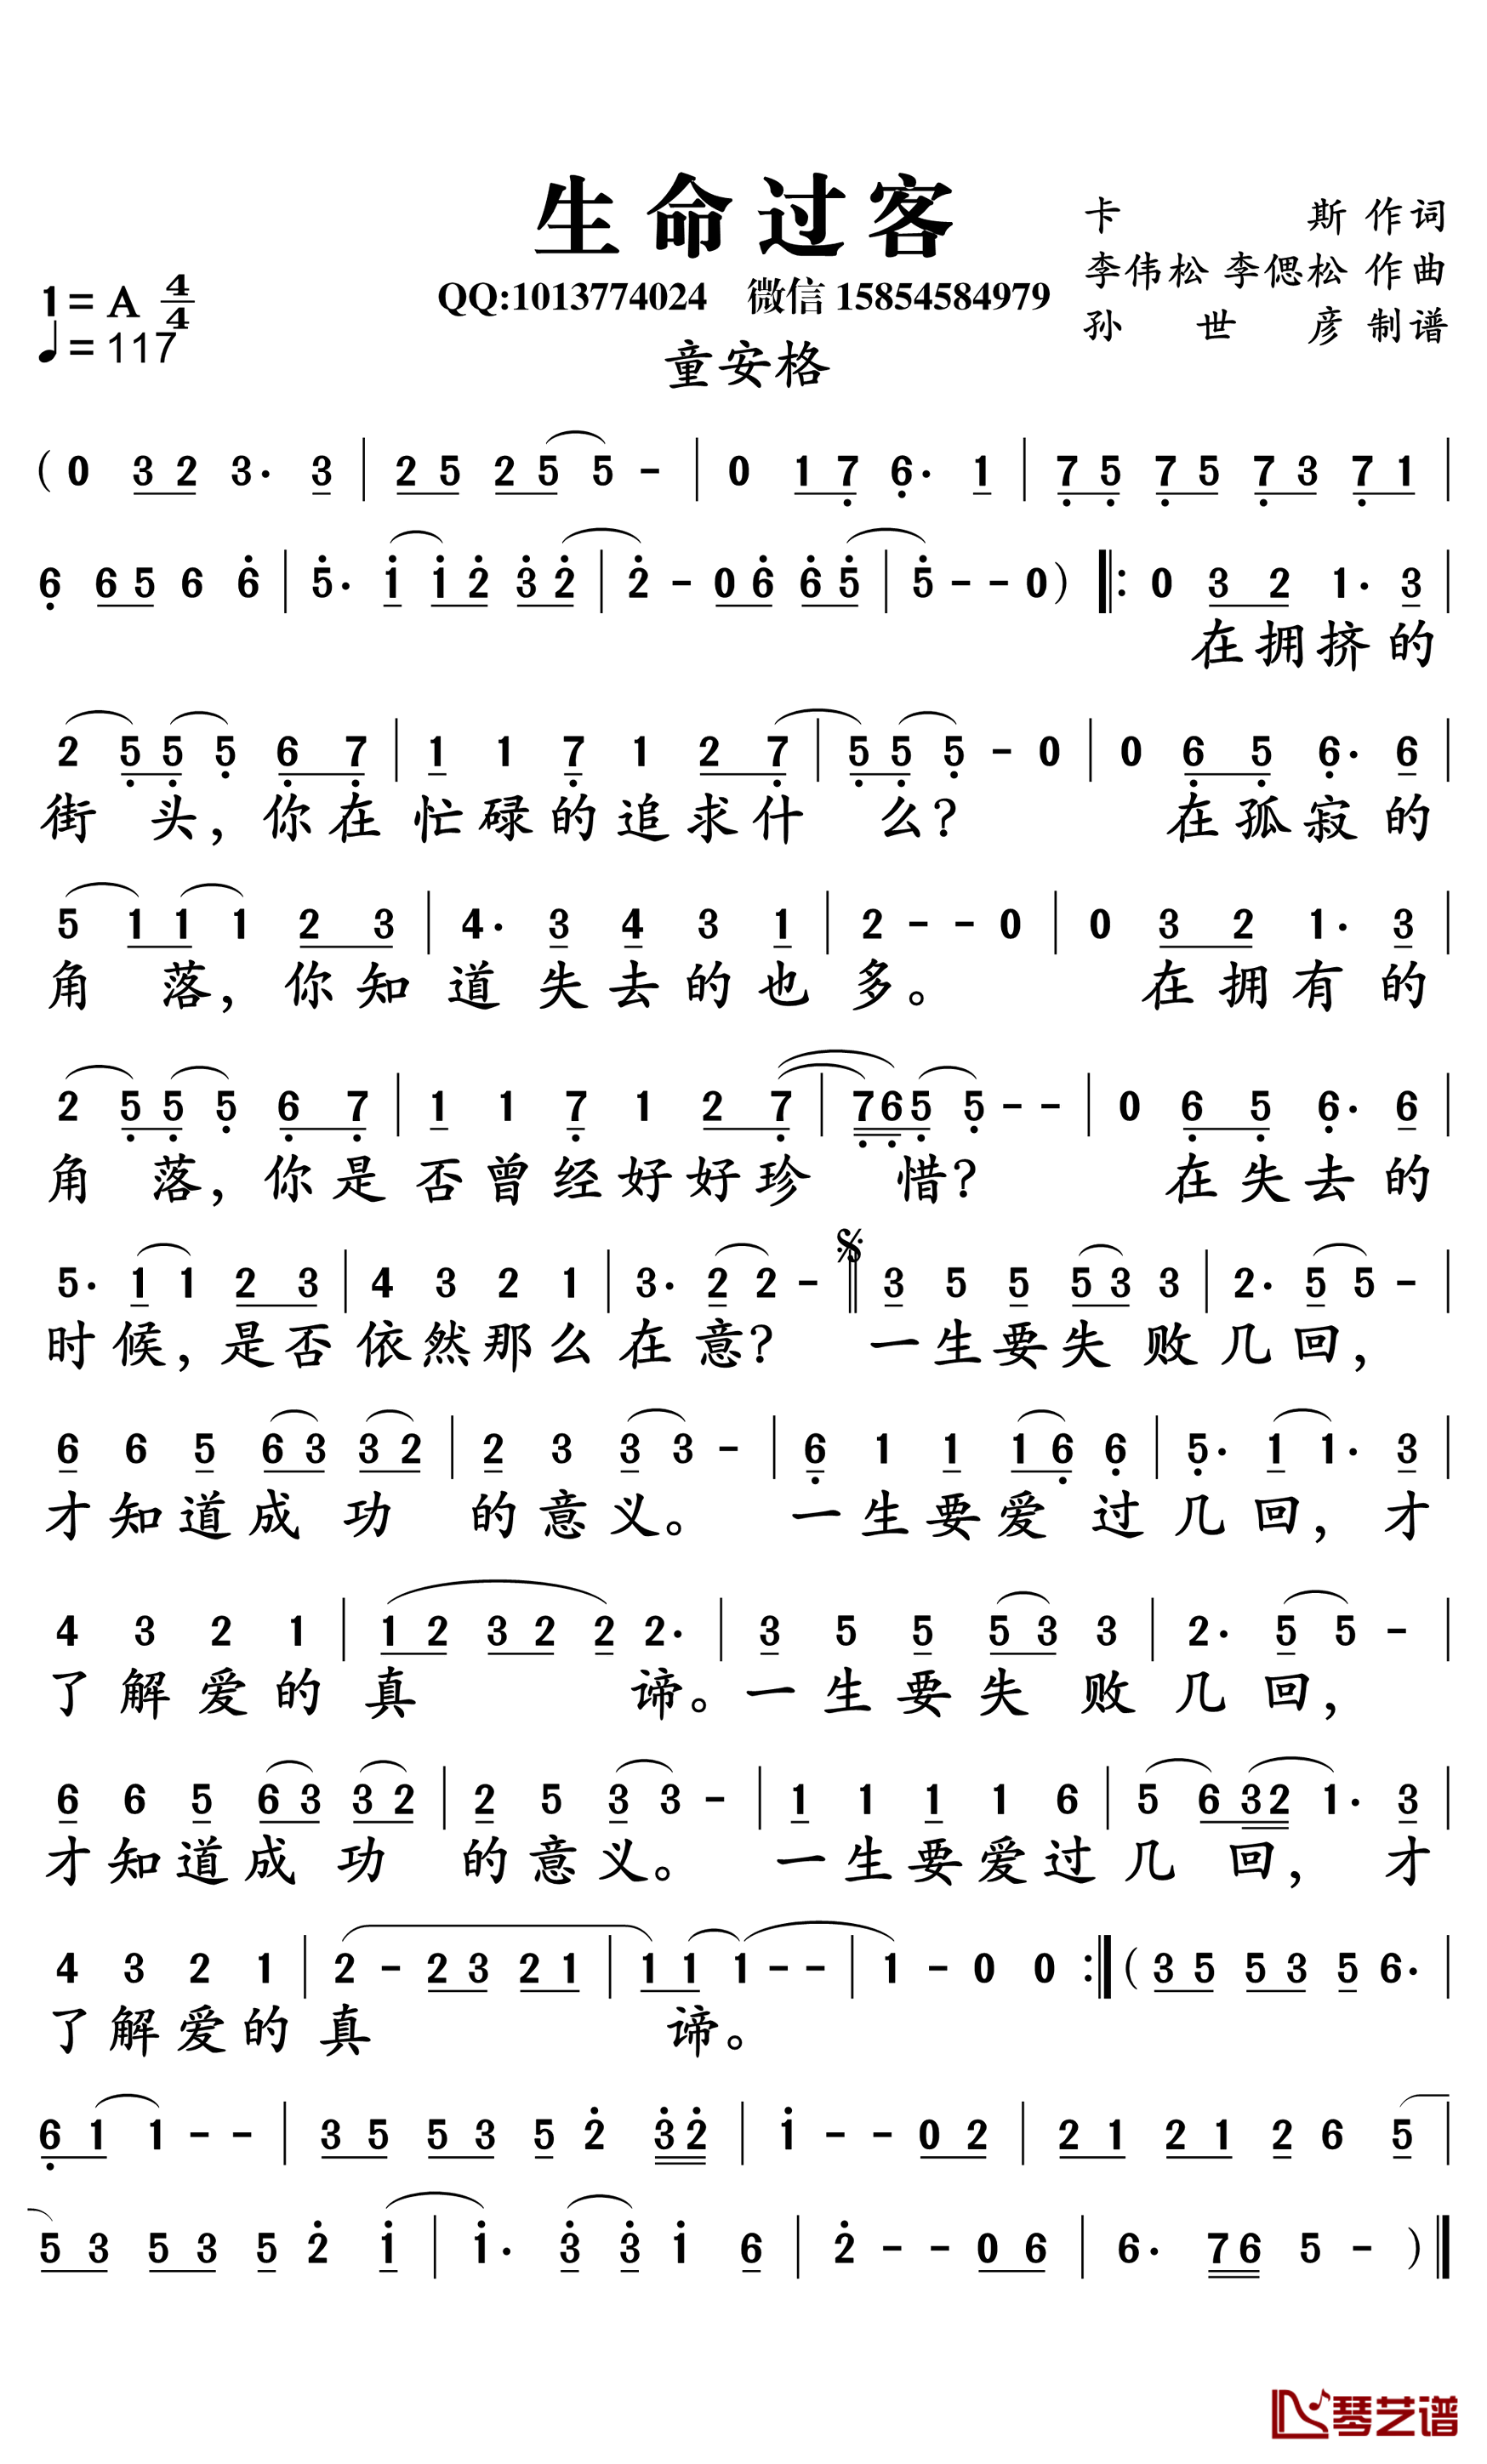 生命过客
卡 斯 作 词
李伟松 李偲松 作 曲
孙 世 彦 制 谱
1= A 4/4
♩= 117
QQ:1013774024 微信 15854584979
童安格
( 0 3 2 3· 3 | 2 5 2 5 5 - | 0 1 7 6· 1 | 7 5 7 5 7 3 7 1 |
6 6 5 6 6 | 5· 1 1 2 3 2 | 2 - 0 6 6 5 | 5 - - 0 ) ‖: 0 3 2 1· 3 |
在 拥 挤 的
2 5 5 5 6 7 | 1 1 7 1 2 7 | 5 5 5 - 0 | 0 6 5 6· 6 |
街 头, 你 在 忙 碌 的 追 求 什 么? 在 孤 寂 的
5 1 1 1 2 3 | 4· 3 4 3 1 | 2 - - 0 | 0 3 2 1· 3 |
角 落, 你 知 道 失 去 的 也 多。 在 拥 有 的
2 5 5 5 6 7 | 1 1 7 1 2 7 | 7 6 5 5 - - | 0 6 5 6· 6 |
角 落, 你 是 否 曾 经 好 好 珍 惜? 在 失 去 的
5· 1 1 2 3 | 4 3 2 1 | 3· 2 2 - ‖ 3 5 5 5 3 3 | 2· 5 5 - |
时 候, 是 否 依 然 那 么 在 意? 一 生 要 失 败 几 回,
6 6 5 6 3 3 2 | 2 3 3 3 - | 6 1 1 1 6 6 | 5· 1 1· 3 |
才 知 道 成 功 的 意 义。 一 生 要 爱 过 几 回, 才
4 3 2 1 | 1 2 3 2 2 2· | 3 5 5 5 3 3 | 2· 5 5 - |
了 解 爱 的 真 谛。 一 生 要 失 败 几 回,
6 6 5 6 3 3 2 | 2 5 3 3 - | 1 1 1 1 6 | 5 6 3 2 1· 3 |
才 知 道 成 功 的 意 义。 一 生 要 爱 过 几 回, 才
4 3 2 1 | 2 - 2 3 2 1 | 1 1 1 - - | 1 - 0 0 :‖ ( 3 5 5 3 5 6· |
了 解 爱 的 真 谛。
6 1 1 - - | 3 5 5 3 5 2 3 2 | 1 - - 0 2 | 2 1 2 1 2 6 5 |
5 3 5 3 5 2 1 | 1· 3 3 1 6 | 2 - - 0 6 | 6· 7 6 5 - ) ‖
琴艺谱